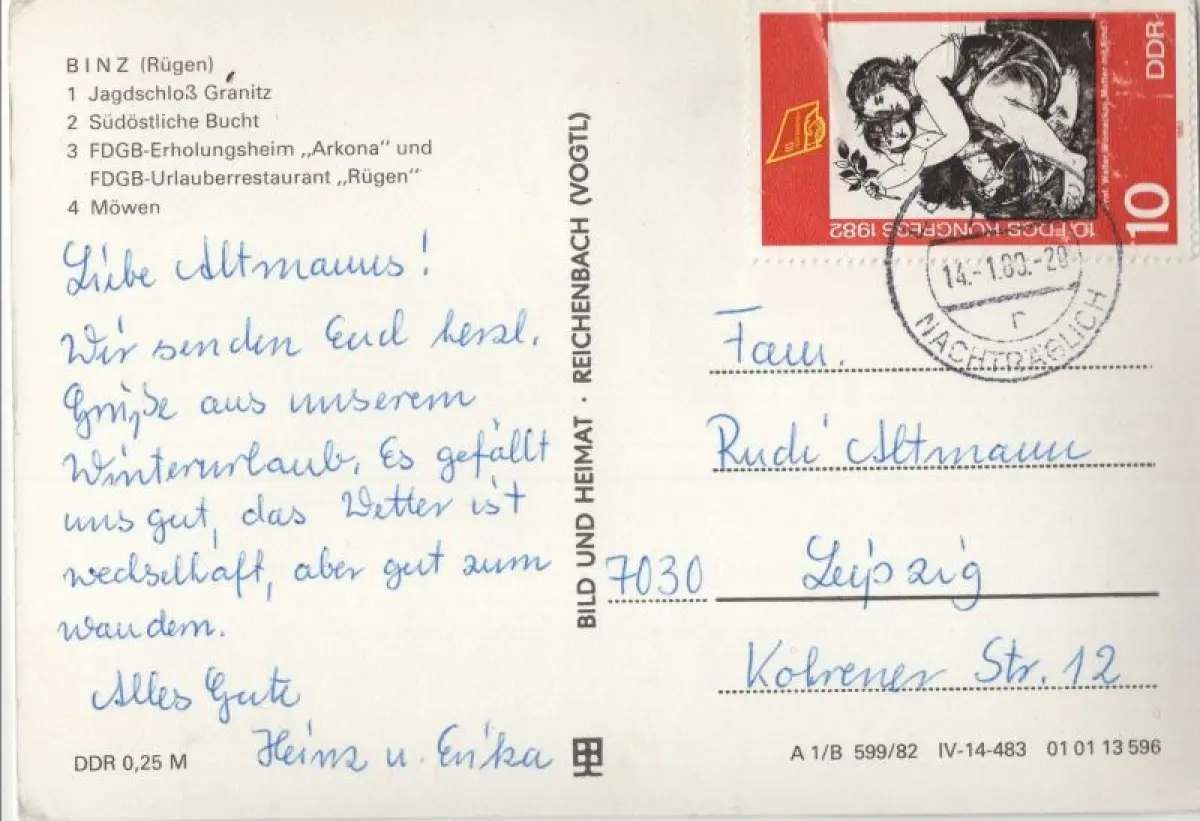 BINZ (Rügen)
1 Jagdschloß Granitz
2 Südöstliche Bucht
3 FDGB-Erholungsheim „Arkona" und
FDGB-Urlauberrestaurant „Rügen"
4 Möwen
Liebe Altmanns!
Wir senden Euch herzl.
Grüße aus unserem
Winterurlaub. Es gefällt
uns gut, das Wetter ist
wechselhaft, aber gut zum
wandern.
Alles Gute
Heinz u. Erika
DDR 0,25 M
BILD UND HEIMAT · REICHENBACH (VOGTL)
DDR
10
10. FDGB-KONGRESS 1982
14.-1.83.-20
r
NACHTRÄGLICH
Fam.
Rudi Altmann
7030 Leipzig
Kohrener Str. 12
A 1/B 599/82 IV-14-483 01 01 13 596